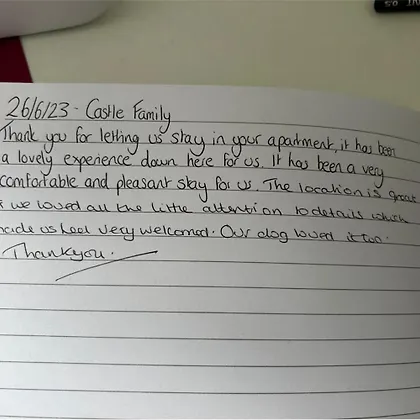 26/6/23 - Castle Family
Thank you for letting us stay in your apartment, it has been
a lovely experience down here for us. It has been a very
comfortable and pleasant stay for us. The location is great
& we loved all the little attention to details which
made us feel very welcomed. Our dog loved it too.
Thankyou.